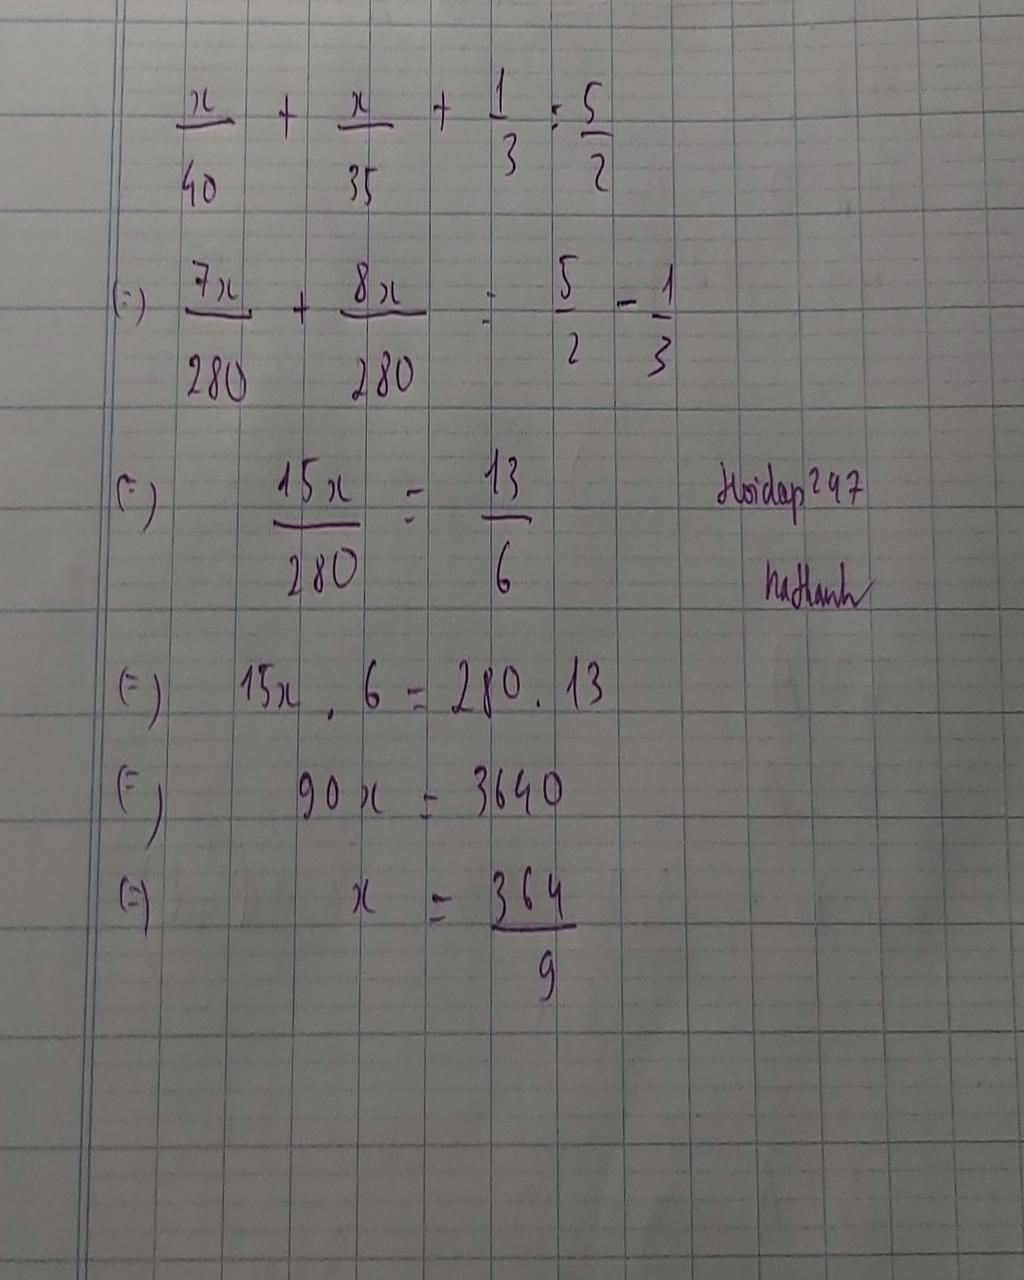 x/40 + x/35 + 1/3 = 5/2
(=) 7x/280 + 8x/280 = 5/2 - 1/3
(=) 15x/280 = 13/6
Hoidap247
hathanh
(=) 15x . 6 = 280 . 13
(=) 90x = 3640
(=) x = 364/9